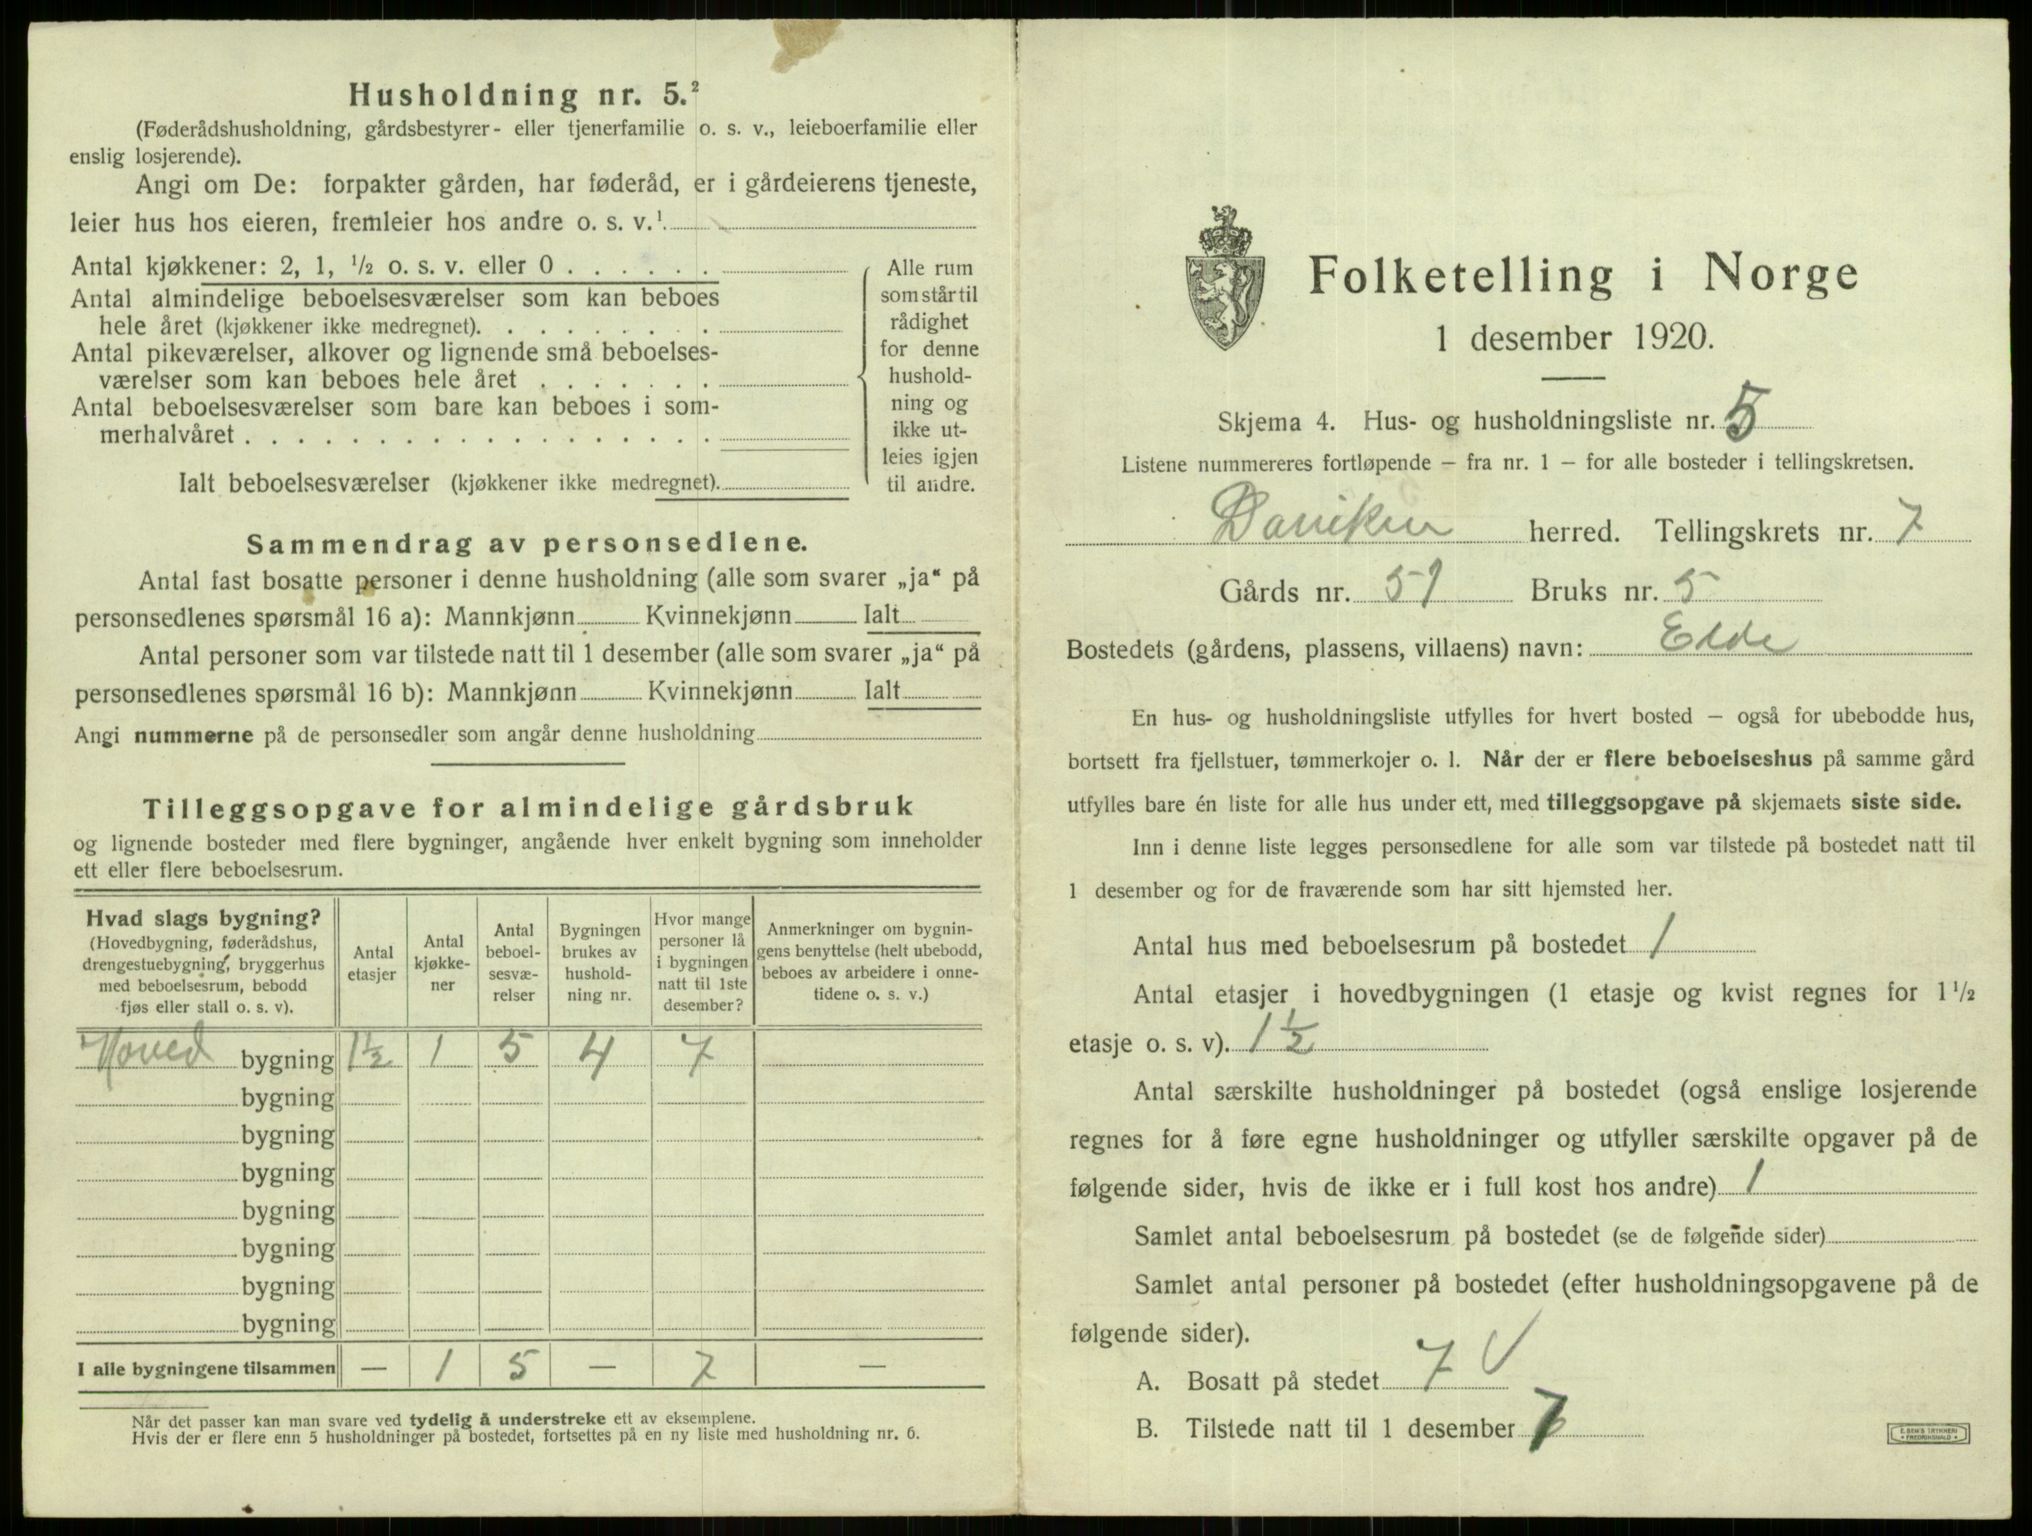 Husholdning nr. 5.²
(Føderådshusholdning, gårdsbestyrer- eller tjenerfamilie o. s. v., leieboerfamilie eller
enslig losjerende).
Angi om De: forpakter gården, har føderåd, er i gårdeierens tjeneste,
leier hus hos eieren, fremleier hos andre o. s. v.¹
Antal kjøkkener: 2, 1, ½ o. s. v. eller 0 . . . . . .
Antal almindelige beboelsesværelser som kan beboes
hele året (kjøkkener ikke medregnet). . . . . . . . .
Antal pikeværelser, alkover og lignende små beboelses-
værelser som kan beboes hele året . . . . . . .
Antal beboelsesværelser som bare kan beboes i som-
merhalvåret . . . . . . . . . . . . . . . . . .
Ialt beboelsesværelser (kjøkkener ikke medregnet).
Alle rum
som står til
rådighet
for denne
hushold-
ning og
ikke ut-
leies igjen
til andre.
Sammendrag av personsedlene.
Antal fast bosatte personer i denne husholdning (alle som svarer „ja“ på
personsedlenes spørsmål 16 a): Mannkjønn Kvinnekjønn Ialt
Antal personer som var tilstede natt til 1 desember (alle som svarer „ja“ på
personsedlenes spørsmål 16 b): Mannkjønn Kvinnekjønn Ialt
Angi nummerne på de personsedler som angår denne husholdning
Tilleggsopgave for almindelige gårdsbruk
og lignende bosteder med flere bygninger, angående hver enkelt bygning som inneholder
ett eller flere beboelsesrum.
Hvad slags bygning?
(Hovedbygning, føderådshus,
drengestuebygning, bryggerhus
med beboelsesrum, bebodd
fjøs eller stall o. s. v).
Antal
etasjer
Antal
kjøkke-
ner
Antal
beboel-
sesvæ-
relser
Bygningen
brukes av
hushold-
ning nr.
Hvor mange
personer lå
i bygningen
natt til 1ste
desember?
Anmerkninger om bygnin-
gens benyttelse (helt ubebodd,
beboes av arbeidere i onne-
tidene o. s. v.)
Hoved bygning 1½ 1 5 4 7
bygning
bygning
bygning
bygning
bygning
bygning
bygning
I alle bygningene tilsammen — 1 5 — 7 —
Når det passer kan man svare ved tydelig å understreke ett av eksemplene.
Hvis der er flere enn 5 husholdninger på bostedet, fortsettes på en ny liste med husholdning nr. 6.
Folketelling i Norge
1 desember 1920.
Skjema 4. Hus- og husholdningsliste nr. 5
Listene nummereres fortløpende – fra nr. 1 – for alle bosteder i tellingskretsen.
Daviken herred. Tellingskrets nr. 7
Gårds nr. 51 Bruks nr. 5
Bostedets (gårdens, plassens, villaens) navn: Elde
En hus- og husholdningsliste utfylles for hvert bosted – også for ubebodde hus,
bortsett fra fjellstuer, tømmerkojer o. l. Når der er flere beboelseshus på samme gård
utfylles bare én liste for alle hus under ett, med tilleggsopgave på skjemaets siste side.
Inn i denne liste legges personsedlene for alle som var tilstede på bostedet natt til
1 desember og for de fraværende som har sitt hjemsted her.
Antal hus med beboelsesrum på bostedet 1
Antal etasjer i hovedbygningen (1 etasje og kvist regnes for 1½
etasje o. s. v). 1½
Antal særskilte husholdninger på bostedet (også enslige losjerende
regnes for å føre egne husholdninger og utfyller særskilte opgaver på de
følgende sider, hvis de ikke er i full kost hos andre) 1
Samlet antal beboelsesrum på bostedet (se de følgende sider)
Samlet antal personer på bostedet (efter husholdningsopgavene på de
følgende sider).
A. Bosatt på stedet 7 V
B. Tilstede natt til 1 desember 7
E. SEM'S TRYKKERI
• FREDRIKSHALD •